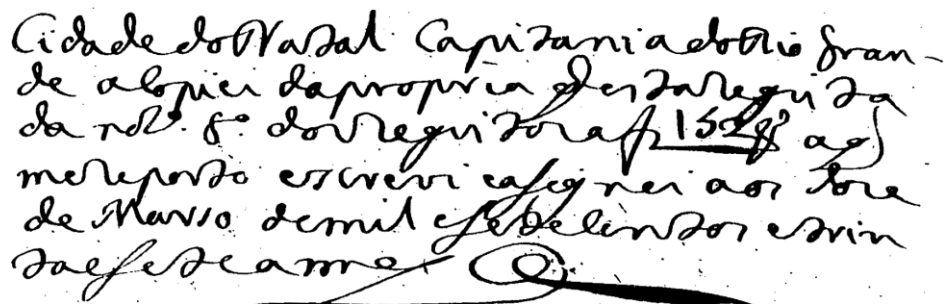 Cidade do Natal Capitania do Rio gran-
de a copiei da propria q̃ esta registra
da no L.º 8.º dos registros a f 152 aq̃
me reporto escrevi e asignei aos doze
de Marso de mil e sete centos e trin
ta e sete annos